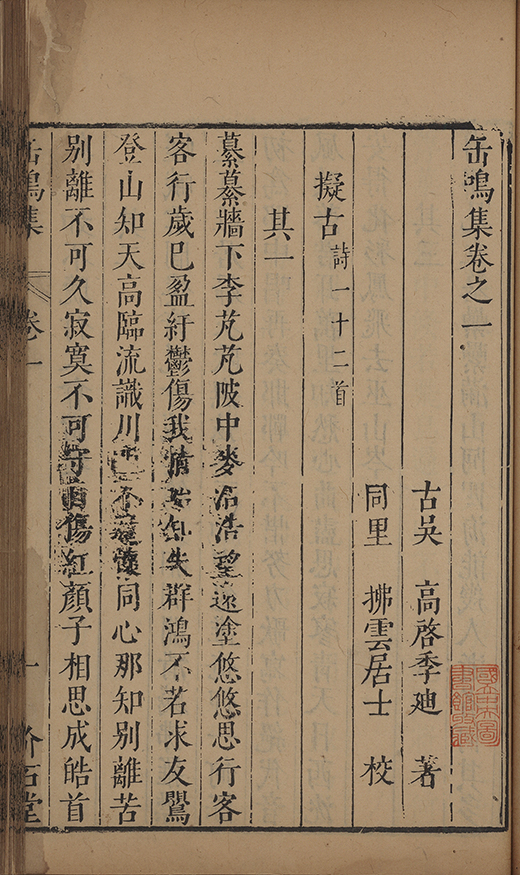 缶鳴集卷之一
古吳 高啓季迪 著
同里 拂雲居士 校
擬古詩一十二首
其一
纂纂牆下李芃芃陂中麥浩浩望遠塗悠悠思行客
客行歲巳盈紆鬱傷我情始知失群鴻不若求友鸎
登山知天高臨流識川不懷同心那知別離苦
別離不可久寂寞不可守自傷紅顏子相思成皓首
缶鳴集 卷一 一 介石堂
國立中央圖
書館收藏